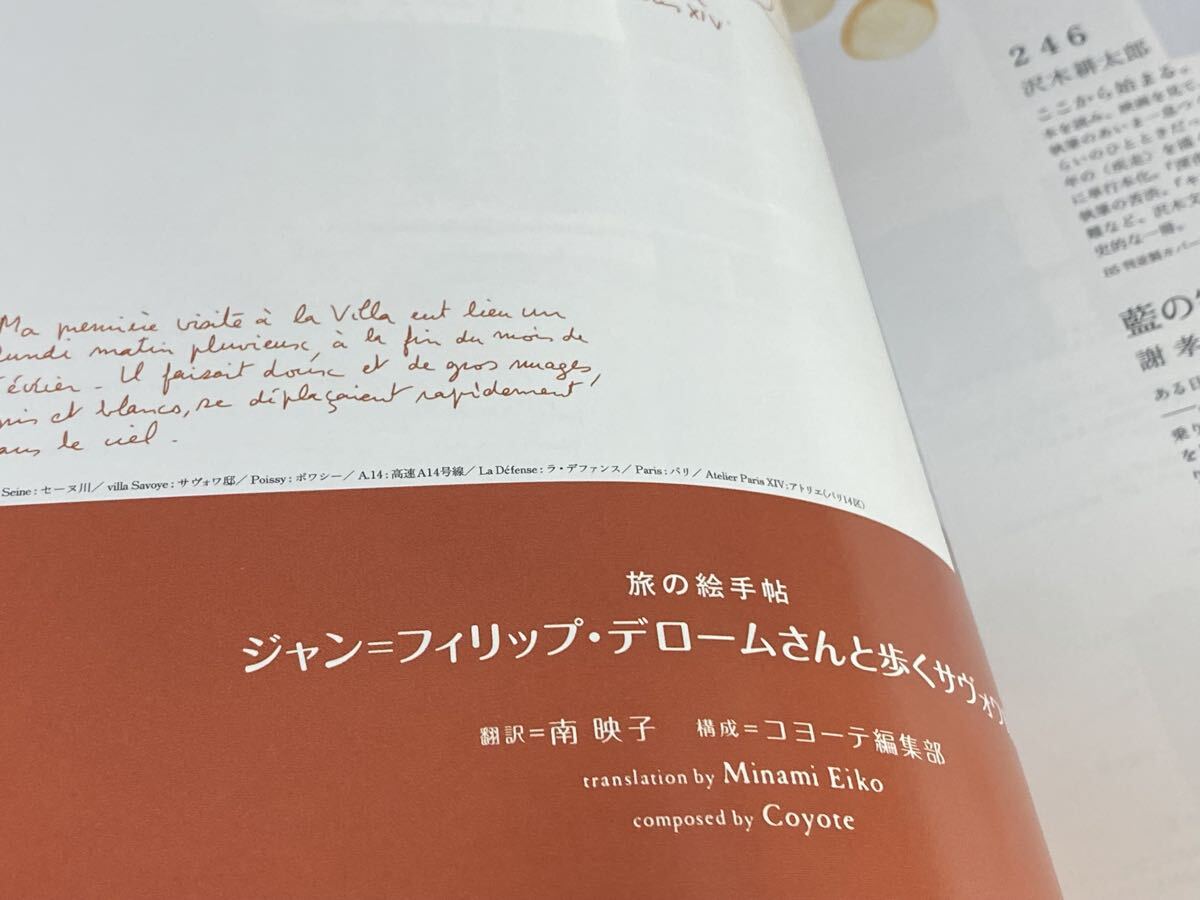 XIV.
Ma première visite à la Villa eut lieu un
lundi matin pluvieux, à la fin du mois de
février. Il faisait doux et de gros nuages,
gris et blancs, se déplaçaient rapidement
dans le ciel.
Seine:セーヌ川/ villa Savoye:サヴォワ邸/ Poissy:ポワシー/ A.14:高速A14号線/ La Défense:ラ・デファンス/ Paris:パリ/ Atelier Paris XIV:アトリエ(パリ14区)
旅の絵手帖
ジャン=フィリップ・デロームさんと歩くサヴォワ
翻訳=南 映子 構成=コヨーテ編集部
translation by Minami Eiko
composed by Coyote
246
沢木耕太郎
ここから始まる。
本を読み、映画を見て
執筆のあいま一息つ
らいのひとときだっ
年の〈疾走〉を
に単行本化。
執筆の苦渋。
など、沢木文
史的な一冊。
藍の
謝 孝
ある日
乗り
を